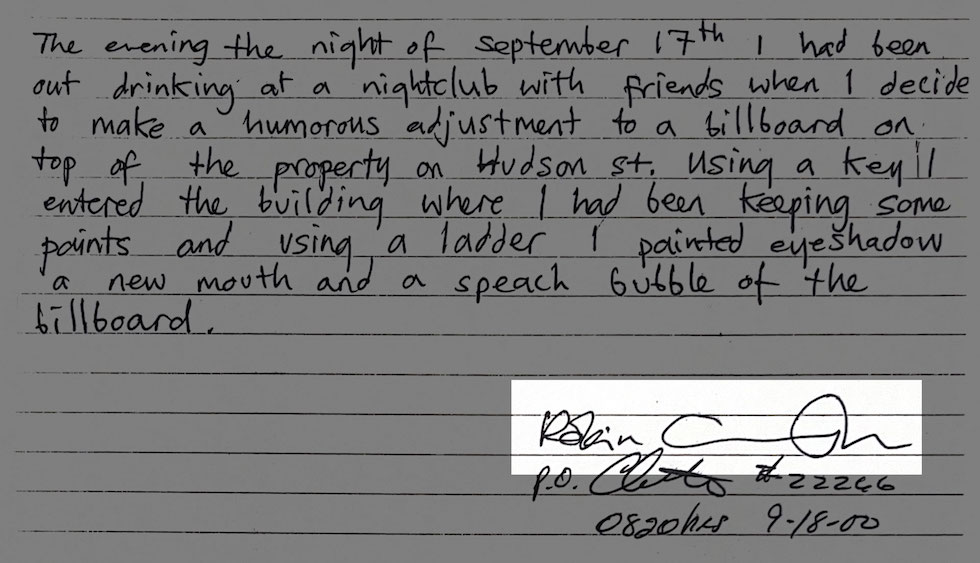 The evening the night of September 17th I had been
out drinking at a nightclub with friends when I decide
to make a humorous adjustment to a billboard on
top of the property on Hudson st. Using a key I
entered the building where I had been keeping some
paints and using a ladder I painted eyeshadow
a new mouth and a speach bubble of the
billboard.
Robin
P.O. #22246
0820hrs 9-18-00